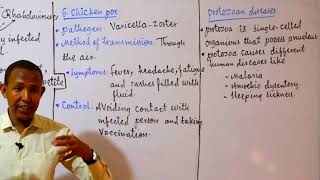 y infected
petite
6. Chicken pox
pathogen: Varicella-Zoster
Method of transmission: Through
the air.
Symptoms: fever, headache, fatigue
and rashes filled with
fluid.
Control: Avoiding contact with
infected person and taking
Vaccination.
protozoan diseases
protozoa is single-celled
organisms that poses a nucleus
protozoa causes different
human diseases like
- Malaria
- Amoebic dysentery
- Sleeping sickness.